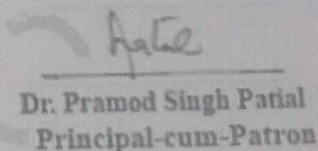 Dr. Pramod Singh Patial
Principal-cum-Patron